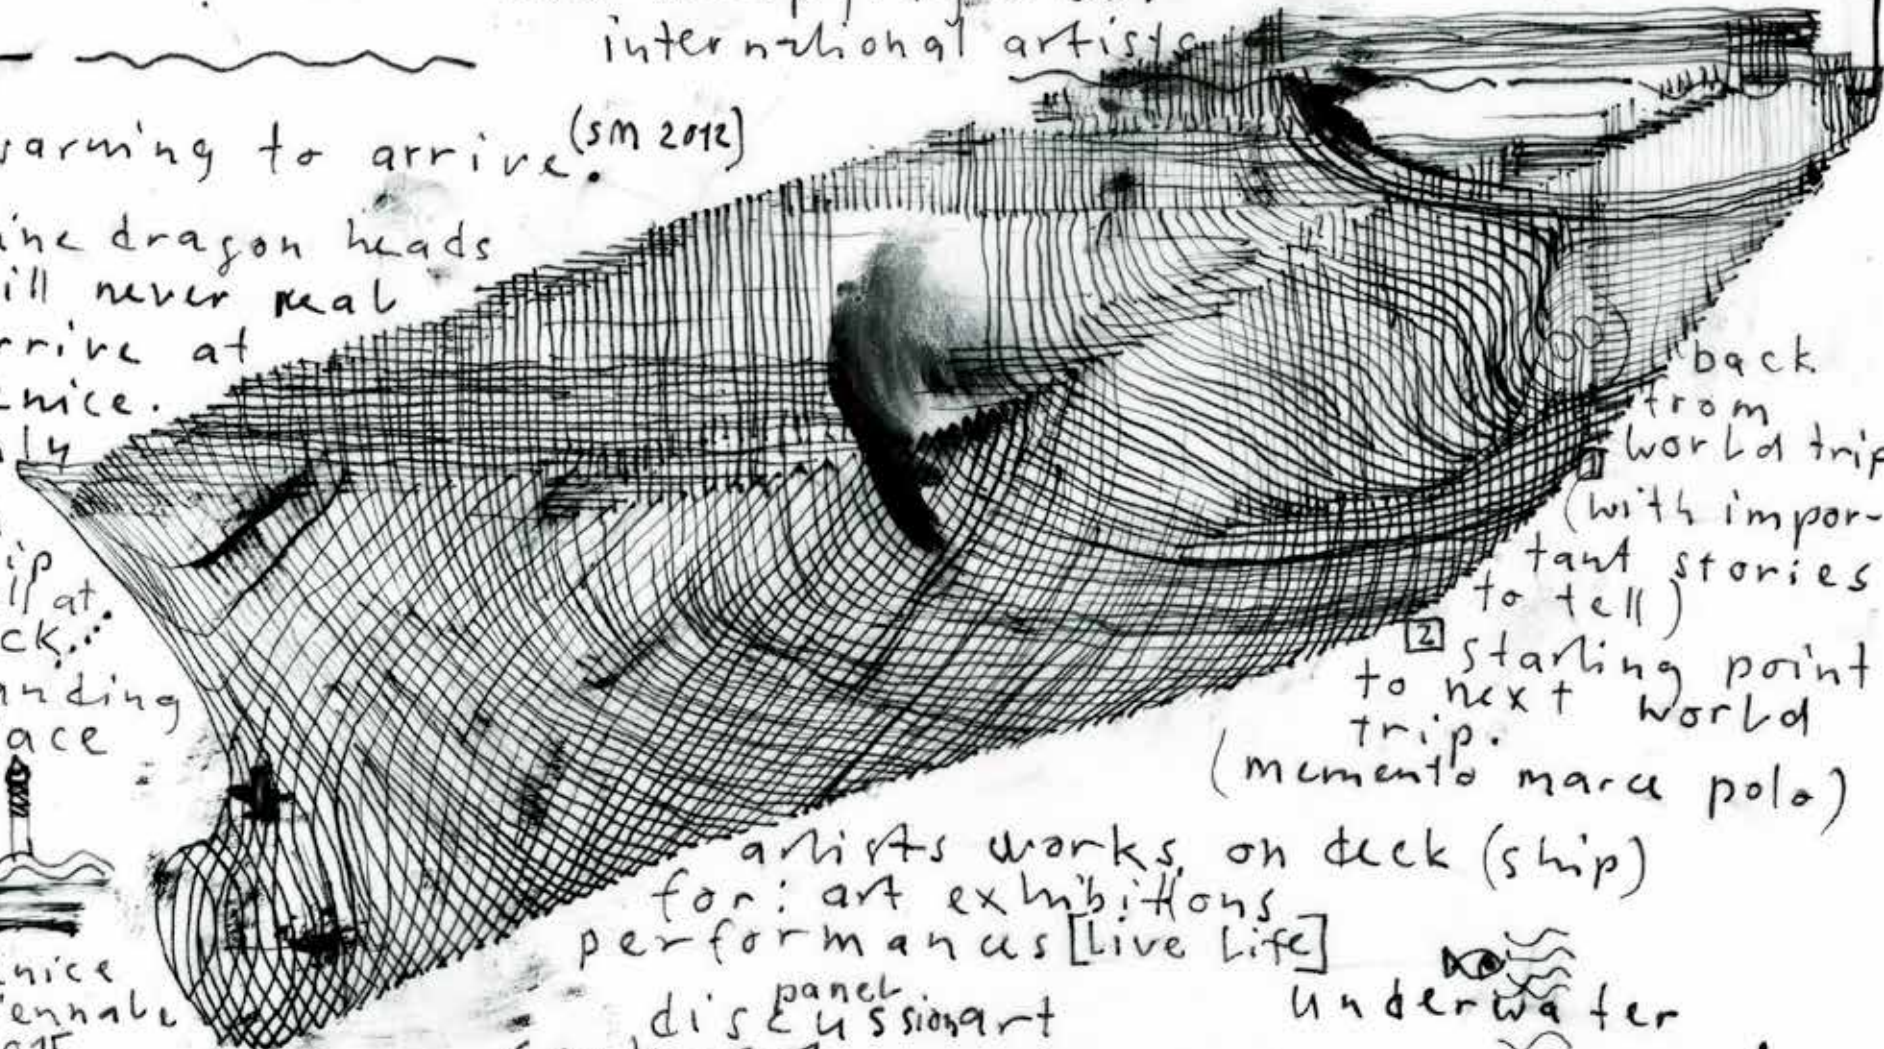 international artists
warming to arrive. (SM 2012)
dragon heads
will never real
arrive at
Venice.
ip at
landing
place
back
from
world trip
1
(with impor-
tant stories
to tell)
2 starting point
to next world
trip.
(memento marco polo)
artists works on deck (ship)
for: art exhibitions
performances [Live Life]
panel
discussion art
underwater
Venice
Biennale